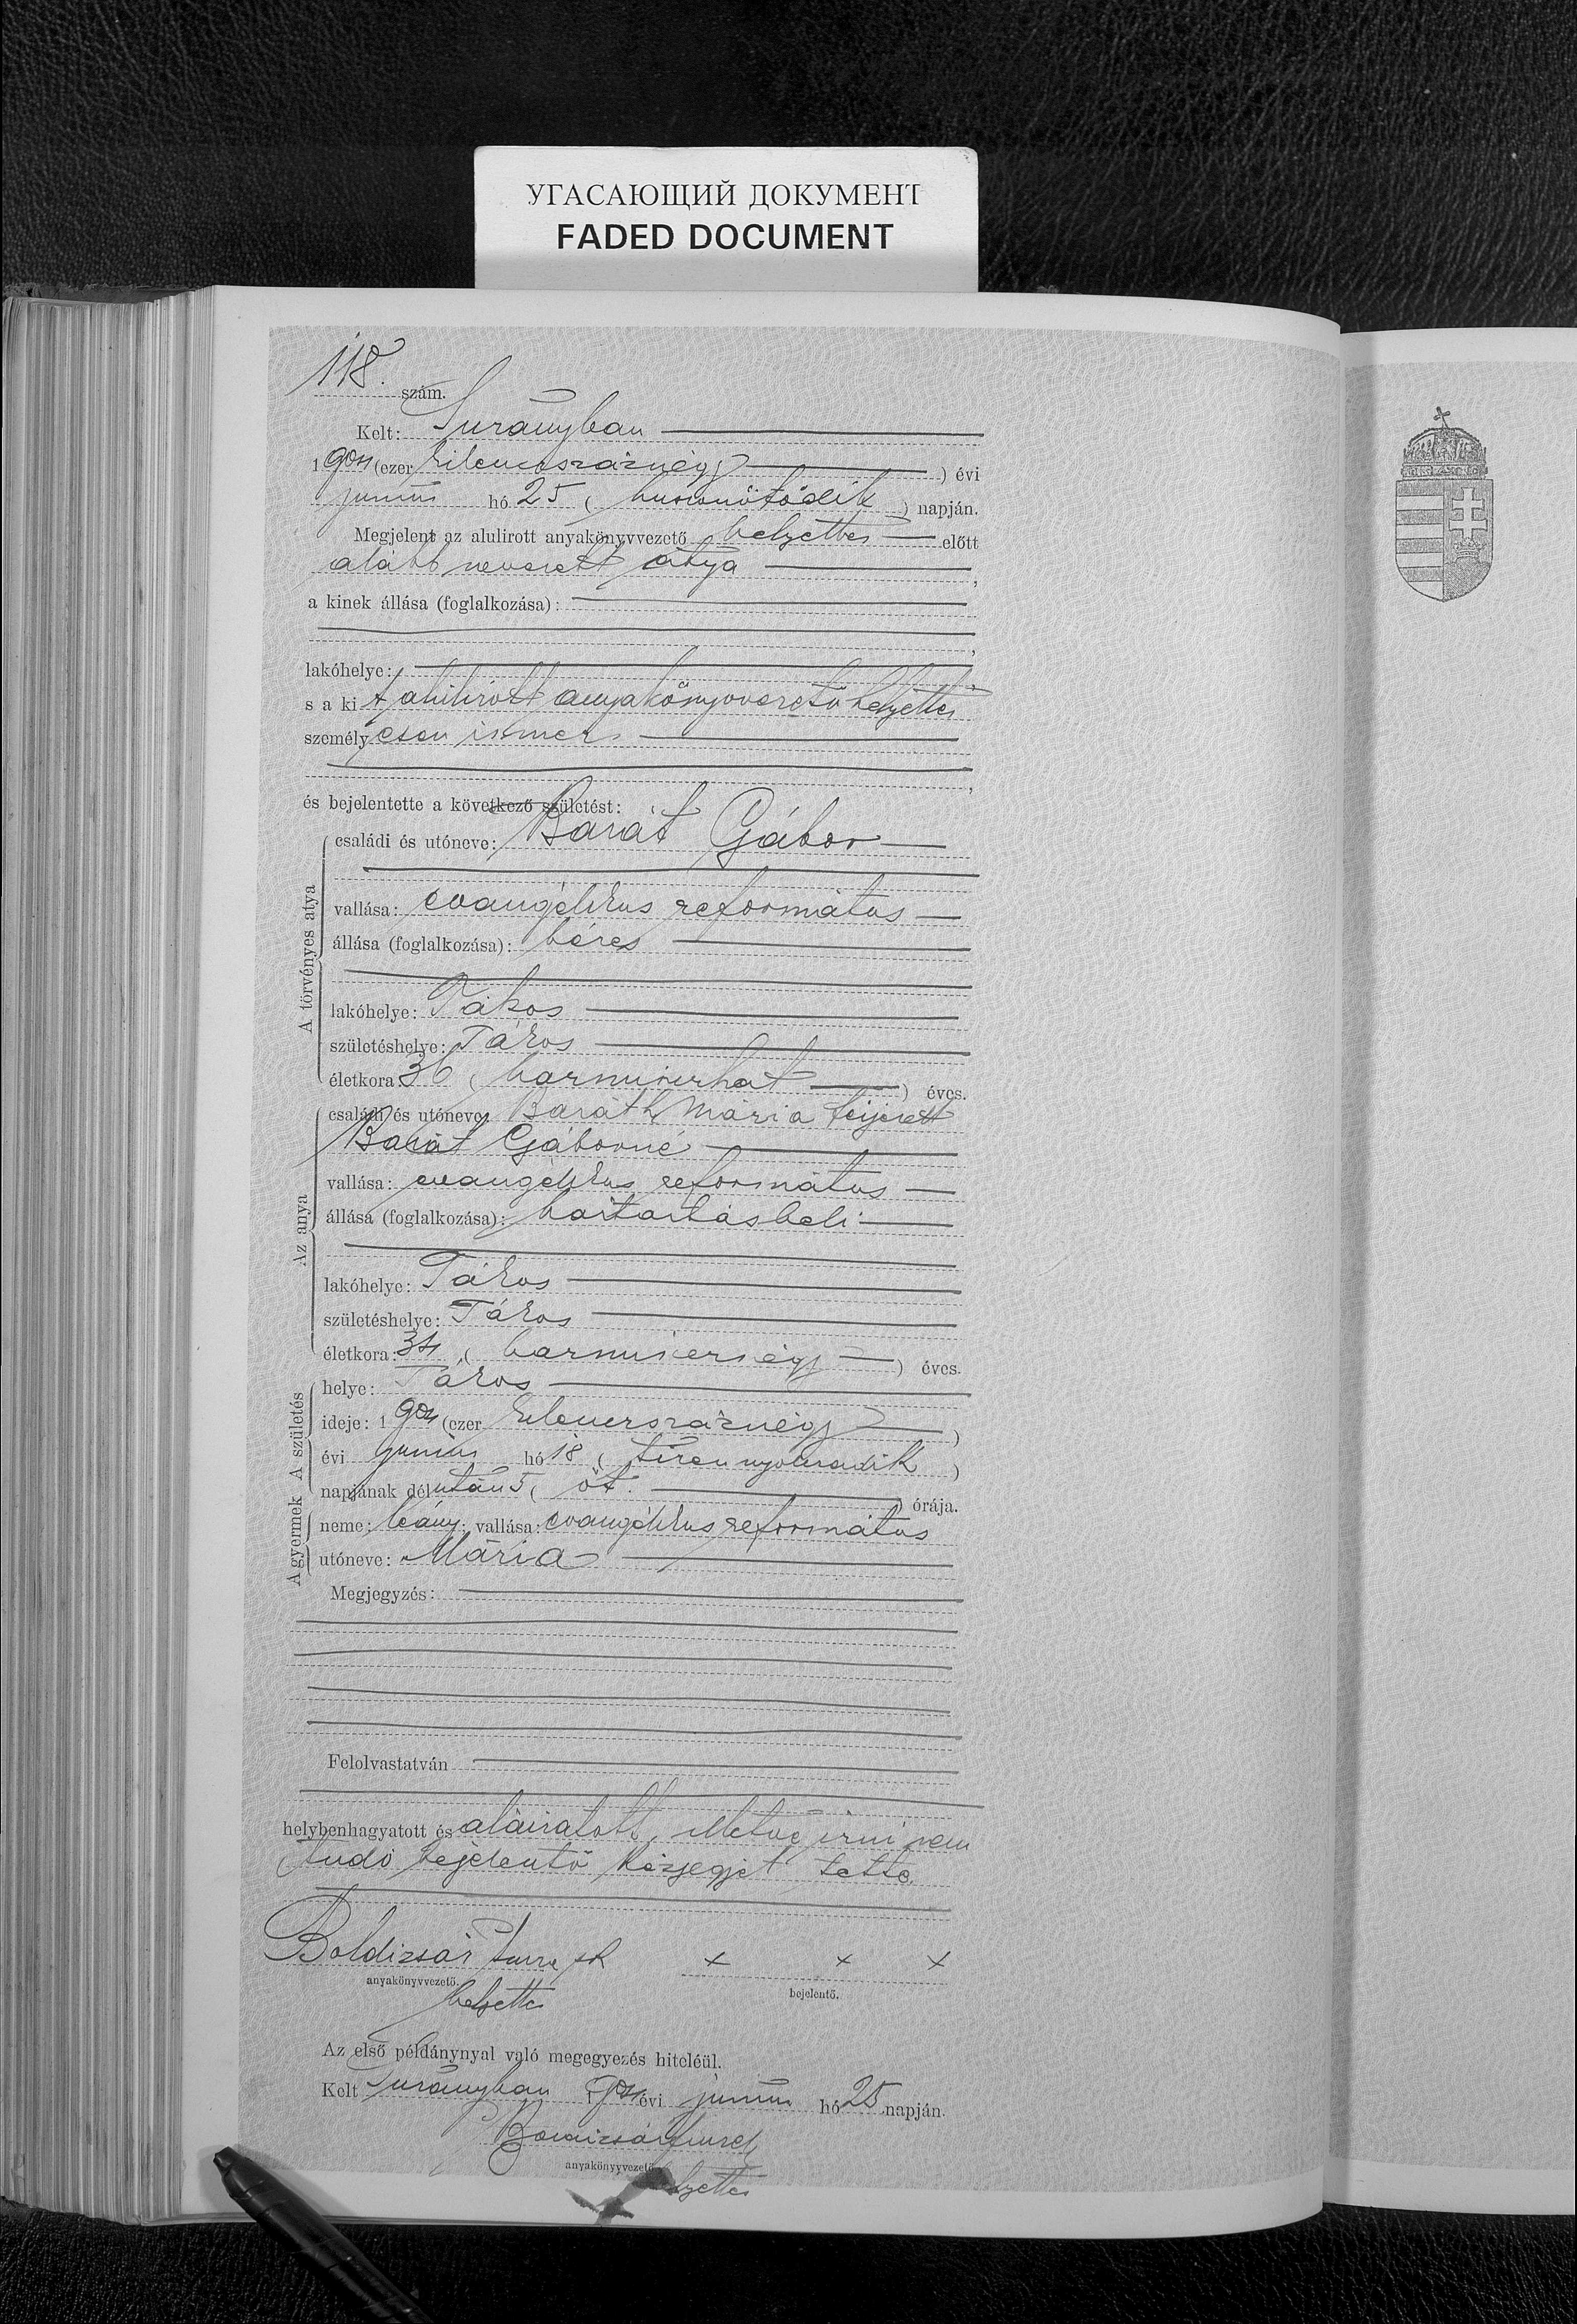 УГАСАЮЩИЙ ДОКУМЕНТ
FADED DOCUMENT
118. szám.
Kelt: Surányban
1904 (ezer kilencszáznégy) évi
junius hó 25 (huszonötödik) napján.
Megjelent az alulirott anyakönyvvezető helyettes előtt
alább nevezett atya,
a kinek állása (foglalkozása):
lakóhelye:
s a ki t alulirott anyakönyvvezető helyettes
személyesen ismer
és bejelentette a következő születést:
A törvényes atya
családi és utóneve: Barát Gábor
vallása: evangélikus református
állása (foglalkozása): béres
lakóhelye: Tákos
születéshelye: Tákos
életkora 36 (harminchat) éves.
Az anya
családi és utóneve: Baráth Mária férjezett
Barát Gáborné
vallása: evangélikus református
állása (foglalkozása): háztartásbeli
lakóhelye: Tákos
születéshelye: Tákos
életkora: 34 (harmincnégy) éves.
A születés
helye: Tákos
ideje: 1904 (ezer kilencszáznégy)
évi junius hó 18 (tizennyolcadik)
napjának délután 5 (öt.) órája.
A gyermek
neme: leány; vallása: evangélikus református
utóneve: Mária
Megjegyzés:
Felolvastatván
helybenhagyatott és aláiratott, illetve irni nem
tudó bejelentő kézjegyét tette.
Boldizsár Imre sk
anyakönyvvezető.
helyettes
x x x
bejelentő.
Az első példánynyal való megegyezés hiteléül.
Kelt Surányban 1904 évi junius hó 25 napján.
Boldizsár Imre
anyakönyvvezető
helyettes